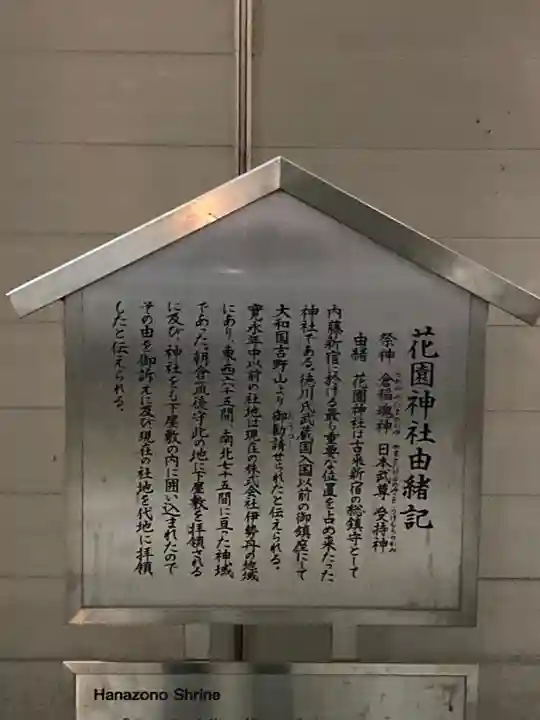 花園神社由緒記
祭神 倉稲魂神 日本武尊 受持神
由緒 花園神社は古来新宿の総鎮守として
内藤新宿に於ける最も重要な位置を占め来たった
神社である。徳川氏武蔵国入国以前の御鎮座にして
大和国吉野山より御勧請せられたと伝えられる。
寛永年中以前の社地は現在の株式会社伊勢丹の地域
にあり、東西六十五間、南北七十五間に亘った神域
であった。朝倉筑後守此の地に下屋敷を拝領される
に及び、神社をも下屋敷の内に囲い込まれたので
その由を御訴えに及び現在の社地を代地に拝領
したと伝えられる。
Hanazono Shrine